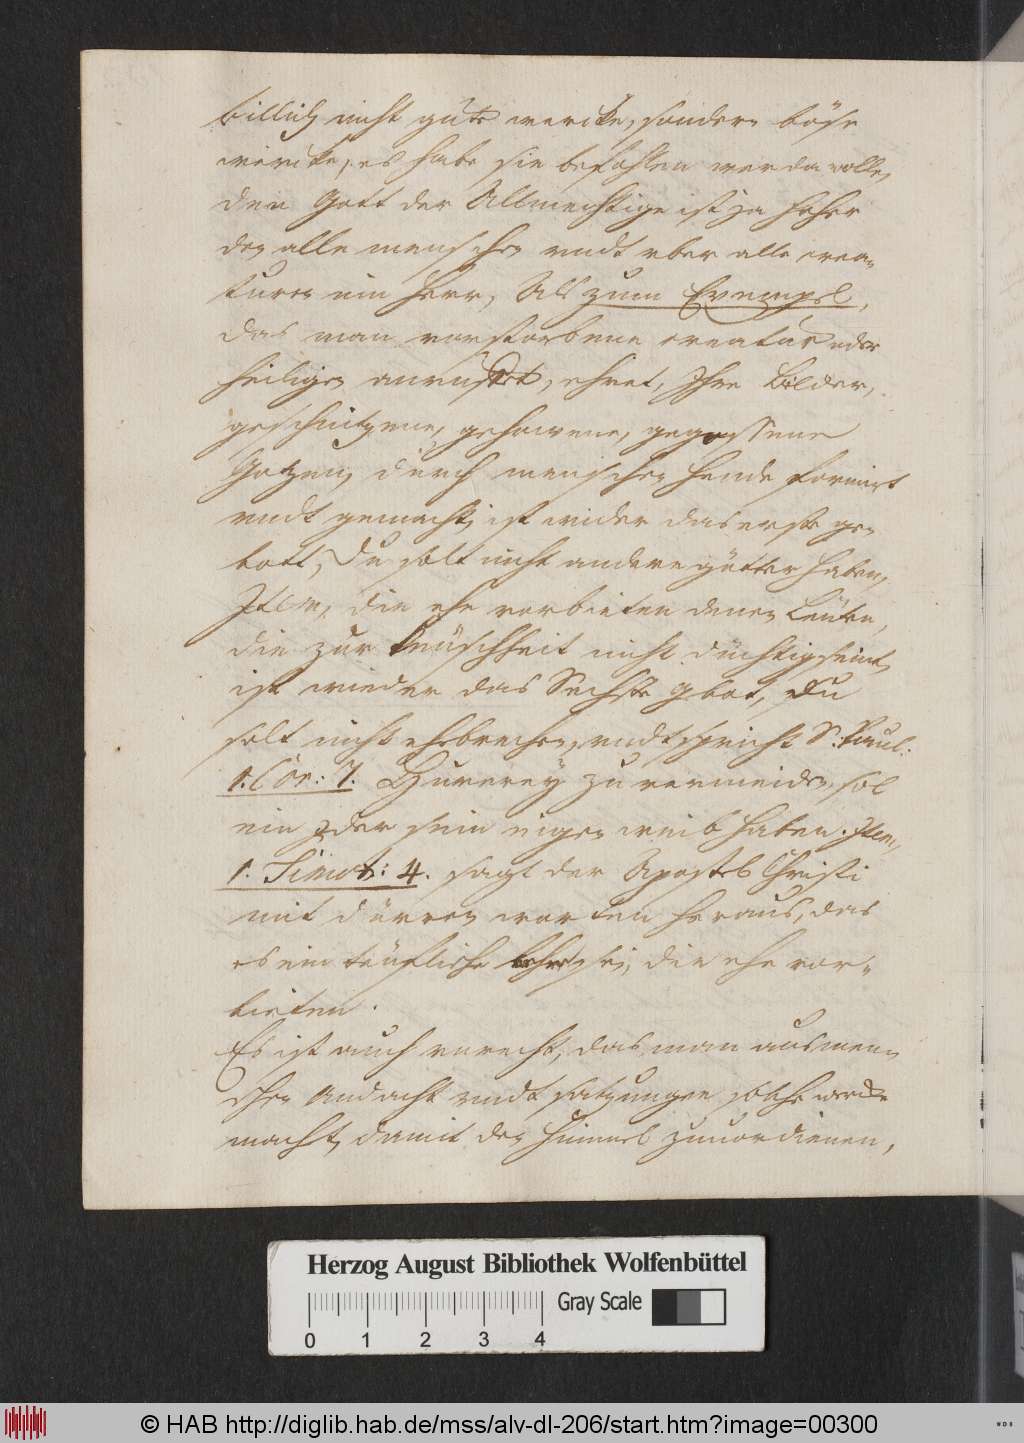 billich nicht gute wercke, sondern böse
wercke, es habe sie befohlen wer da wolle,
den Gott der Allmechtige ist ja höher
den alle menschen vndt vber alle crea-
turen ein Herr, Als zum Exempel,
das man verstorbene creatur oder
heiligen anruffet, ehret, Ihre Bilder,
geschnitzene, gehawene, gegossene
Gotzen, durch menschen hende formirt
vndt gemacht, ist wider das erste ge-
bott, Du solt nicht andere götter haben,
Item, die ehe verbieten denen Leuten,
die zur Keuschheit nicht düchtig seint,
ist wieder das Sechste gbot, du
solt nicht ehebrechen, vndt spricht S. Paul:
1. Cor: 7. Hurerey zu vermeiden, sol
ein jder sein eigen weib haben. Item,
1. Timot: 4. sagt der Apostel Christi
mit dürren worten heraus, das
es ein teufliche lehre sei, die ehe ver-
bieten.
Es ist auch vnrecht, das man aus men-
schen Andacht vndt satzungen solche wercke
macht, damit den Himmel zuuordienen,
Herzog August Bibliothek Wolfenbüttel
Gray Scale
0 1 2 3 4
© HAB http://diglib.hab.de/mss/alv-dl-206/start.htm?image=00300